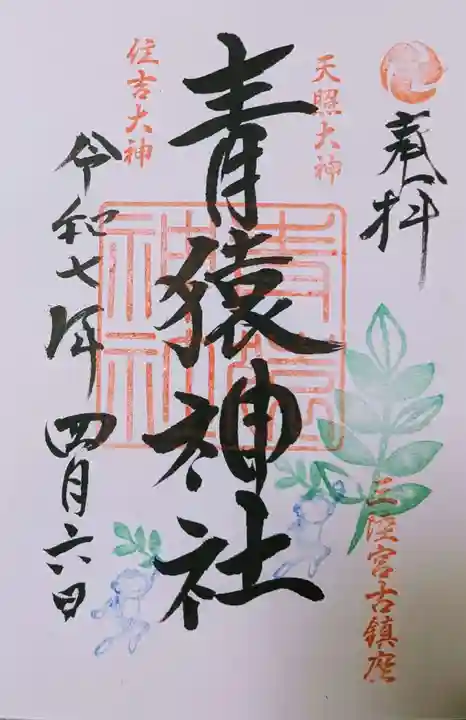 奉拝
天照大神
三陸宮古鎮座
青猿神社
住吉大神
令和七年四月六日